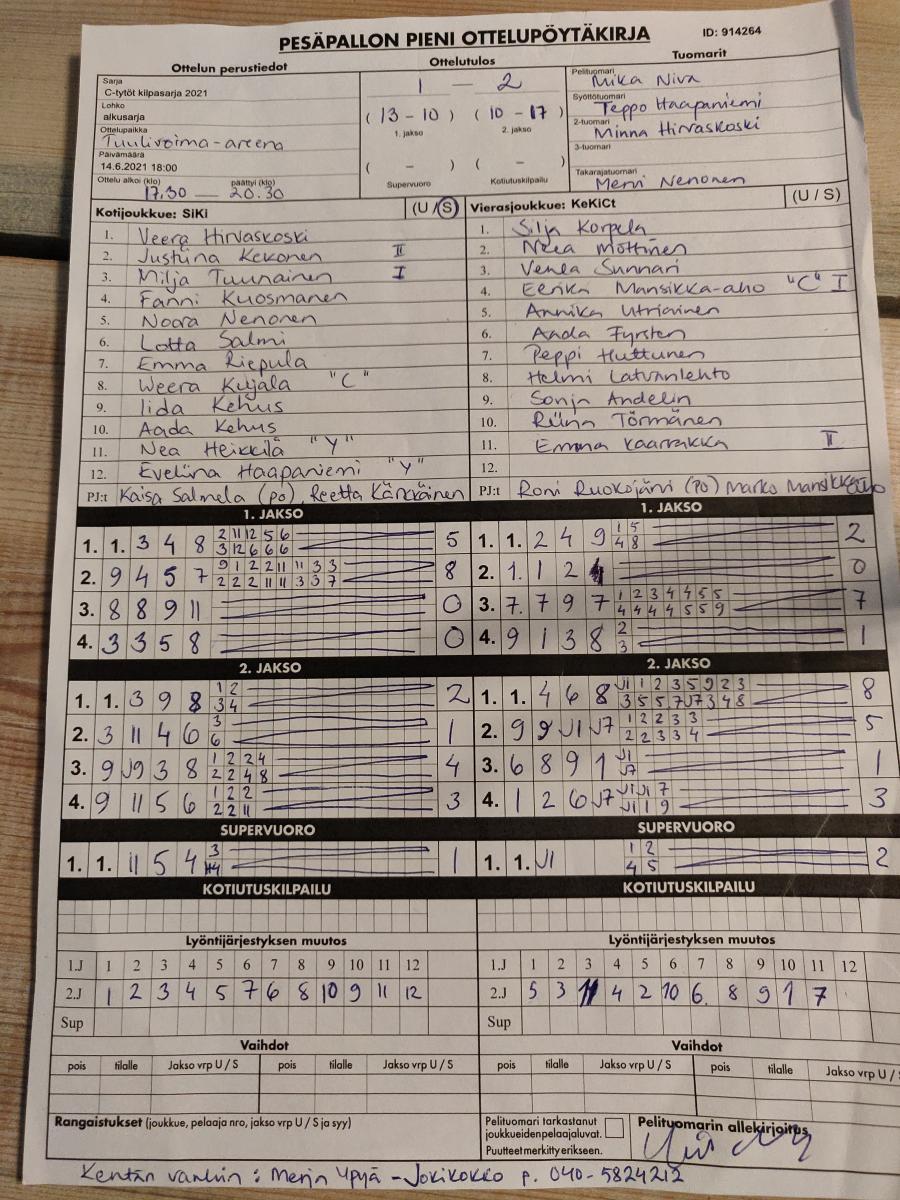 PESÄPALLON PIENI OTTELUPÖYTÄKIRJA
ID: 914264
Ottelun perustiedot
Sarja
C-tytöt kilpasarja 2021
Lohko
alkusarja
Ottelupaikka
Tuulivoima-areena
Päivämäärä
14.6.2021 18:00
Ottelu alkoi (klo) päättyi (klo)
17.30 — 20.30
Ottelutulos
1 — 2
(13-10) (10-17)
1. jakso 2. jakso
( - ) ( - )
Supervuoro Kotiutuskilpailu
Tuomarit
Pelituomari
Mika Niva
Syöttötuomari
Teppo Haapaniemi
2-tuomari
Minna Hirvaskoski
3-tuomari
Takarajatuomari
Mervi Nenonen
Kotijoukkue: SiKi (U / S)
1. Veera Hirvaskoski
2. Justiina Kekonen II
3. Milja Tuunainen I
4. Fanni Kuosmanen
5. Noora Nenonen
6. Lotta Salmi
7. Emma Riepula
8. Weera Kujala "C"
9. Iida Kehus
10. Aada Kehus
11. Nea Heikkilä "Y"
12. Eveliina Haapaniemi "Y"
PJ:t Kaisa Salmela (po), Reetta Kärkkäinen
Vierasjoukkue: KeKiCt (U / S)
1. Silja Korpela
2. Neea Möttinen
3. Venla Sunnari
4. Eerika Mansikka-aho "C" I
5. Annika Utriainen
6. Aada Fyrsten
7. Peppi Huttunen
8. Helmi Latvanlehto
9. Sonja Andelin
10. Riina Törmänen
11. Emma Kaarakka II
12.
PJ:t Roni Ruokojärvi (PO) Marko Mansikka-aho
1. JAKSO
1. 1. 3 4 8 2 11 12 5 6 5
3 12 6 6 6
2. 9 4 5 7 9 1 2 2 11 11 3 3 8
2 2 2 11 11 3 3 7
3. 8 8 9 11 0
4. 3 3 5 8 0
1. JAKSO
1. 1. 2 4 9 1 5 2
4 8
2. 1. 1 2 0
3. 7. 7 9 7 1 2 3 4 4 5 5 7
4 4 4 4 5 5 9
4. 9 1 3 8 2 1
3
2. JAKSO
1. 1. 3 9 8 1 2 2
3 4
2. 3 11 4 6 3 1
6
3. 9 J9 3 8 1 2 2 4 4
2 2 4 8
4. 9 11 5 6 1 2 2 3
2 2 11
2. JAKSO
1. 1. 4 6 8 J1 1 2 3 5 9 2 3 8
3 5 5 7 J7 3 4 8
2. 9 9 J1 J7 1 2 2 3 3 5
2 2 3 3 4
3. 6 8 9 1 J1 1
J7
4. 1 2 6 J7 J1 J1 7 3
J1 1 9
SUPERVUORO
1. 1. 11 5 4 3 1
4
SUPERVUORO
1. 1. J1 1 2 2
4 5
KOTIUTUSKILPAILU
KOTIUTUSKILPAILU
Lyöntijärjestyksen muutos
1.J 1 2 3 4 5 6 7 8 9 10 11 12
2.J 1 2 3 4 5 7 6 8 10 9 11 12
Sup
Lyöntijärjestyksen muutos
1.J 1 2 3 4 5 6 7 8 9 10 11 12
2.J 5 3 11 4 2 10 6. 8 9 1 7
Sup
Vaihdot
pois tilalle Jakso vrp U / S pois tilalle Jakso vrp U / S
Vaihdot
pois tilalle Jakso vrp U / S pois tilalle Jakso vrp U / S
Rangaistukset (joukkue, pelaaja nro, jakso vrp U / S ja syy)
Pelituomari tarkastanut
joukkueidenpelaajaluvat.
Puutteet merkitty erikseen.
Pelituomarin allekirjoitus
Kentän vanhin : Merja Ypyä - Jokikokko p. 040-5824212